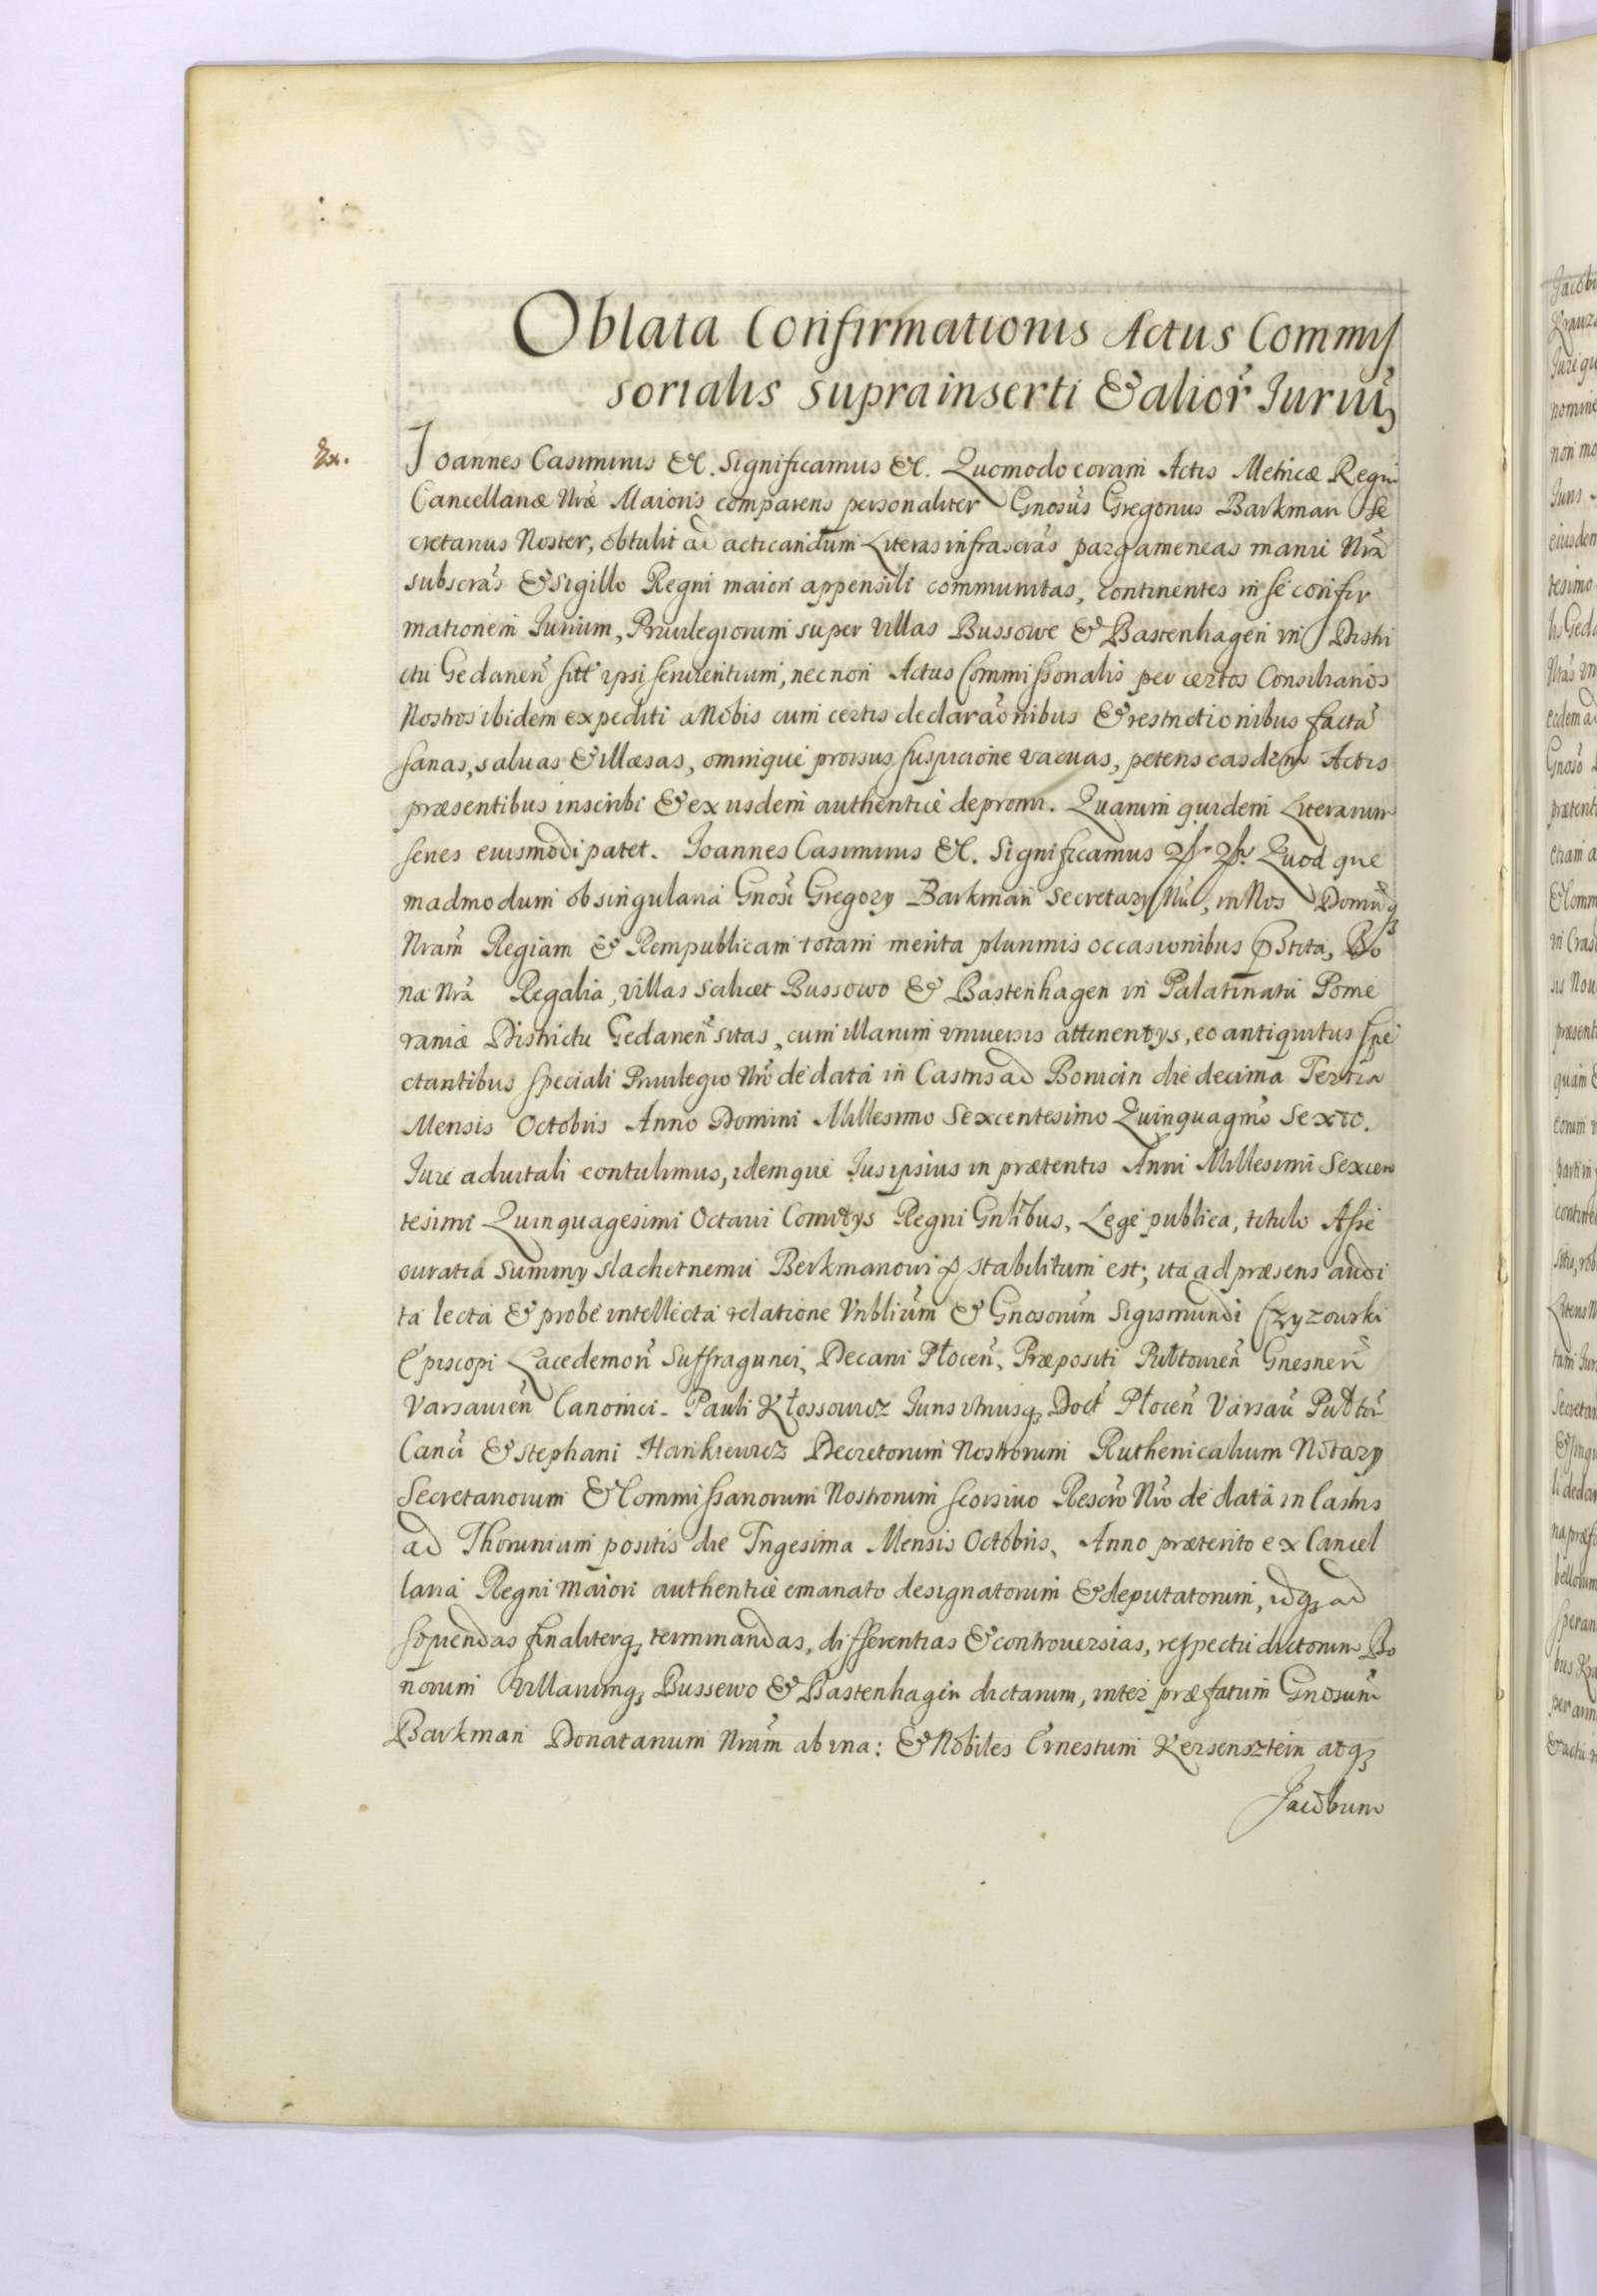 Oblata Confirmationis Actus Commis
sorialis suprainserti & alior̃ Juriũ
Ex.
Joannes Casimirus &c. Significamus &c. Quomodo coram Actis Metricæ Regni
Cancellariæ Nr̃æ Maioris comparens personaliter Gnosus Gregorius Barkman Se
cretarius Noster, obtulit ad acticandum Literas infrascr̃as pargameneas manu Nr̃a
subscr̃as & sigillo Regni maiori appensili communitas, continentes in se confir
mationem Jurium, Privilegiorum super villas Bussowe & Bastenhagen in Distri
ctu Gedanen̄ sitt̃ ipsi servientium, nec non Actus Commissorialis per certos Consiliarios
Nostros ibidem expediti a Nobis cum certis declarãonibus & restrictionibus facta
sanas, salvas & illæsas, omnique prorsus suspicione vacuas, petens easdem Actis
præsentibus inscribi & ex iisdem authenticè depromi. Quarum quidem Literarum
senes eiusmodi patet. Joannes Casimirus &c. Significamus Quod que
madmodum ob singularia Gnosi Gregorÿ Barkman Secretarÿ Nr̃i, in Nos Domũq̃
Nram̃ Regiam & Rempublicam totam merita plurimis occasionibus p̃stita, Bo
na Nr̃a Regalia, villas scilicet Bussowo & Bastenhagen in Palatinatu Pome
raniæ Districtu Gedanen̄ sitas, cum illarum universis attinentÿs, eo antiquitus spe
ctantibus speciali Privilegio Nr̃o de data in Castris ad Bonicin die decima Tertia
Mensis Octobris Anno Domini Millesimo Sexcentesimo Quinquagm̃o Sexto.
Jure advitali contulimus, idemque Jus ipsius in præteritis Anni Millesimi Sexcen
tesimi Quinquagesimi Octavi Comitÿs Regni Gnl̃ibus, Lege publica, titulo Asse
curatia Summy slachetnemu Berkmanowi p stabilitum est; ita ad præsens audi
ta lecta & probe intellecta relatione Vnblium̃ & Gnosorum̃ Sigismundi Czyzowski
Episcopi Lacedemon̄ Suffraganei, Decani Płocen̄, Præpositi Pultowien̄ Gnesnen̄
Varsavien̄ Canonici. Pauli Kłossowicz Juris vtriusq; Doct̃ Płocen̄ Varsav̄ Pultov̄
Canci & Stephani Hankiewicz Decretorum Nostrorum Ruthenicalium Notarÿ
Secretariorum & Commissariorum Nostrorum seorsivo Rescr̃o Nr̃o de data in Castris
ad Thorunium positis die Trigesima Mensis Octobris, Anno præterito ex Cancel
laria Regni Maiori authenticè emanato designatorum & deputatorum, idq; ad
sopiendas finaliterq; terminandas, differentias & controversias, respectu dictorum Bo
norum Villarumq; Bussewo & Bastenhagen dictarum, inter præfatum Gnosum̃
Barkman Donatarium Nrum̃ ab vna: & Nobiles Ernestum Kersensztein atq;
Jacobum